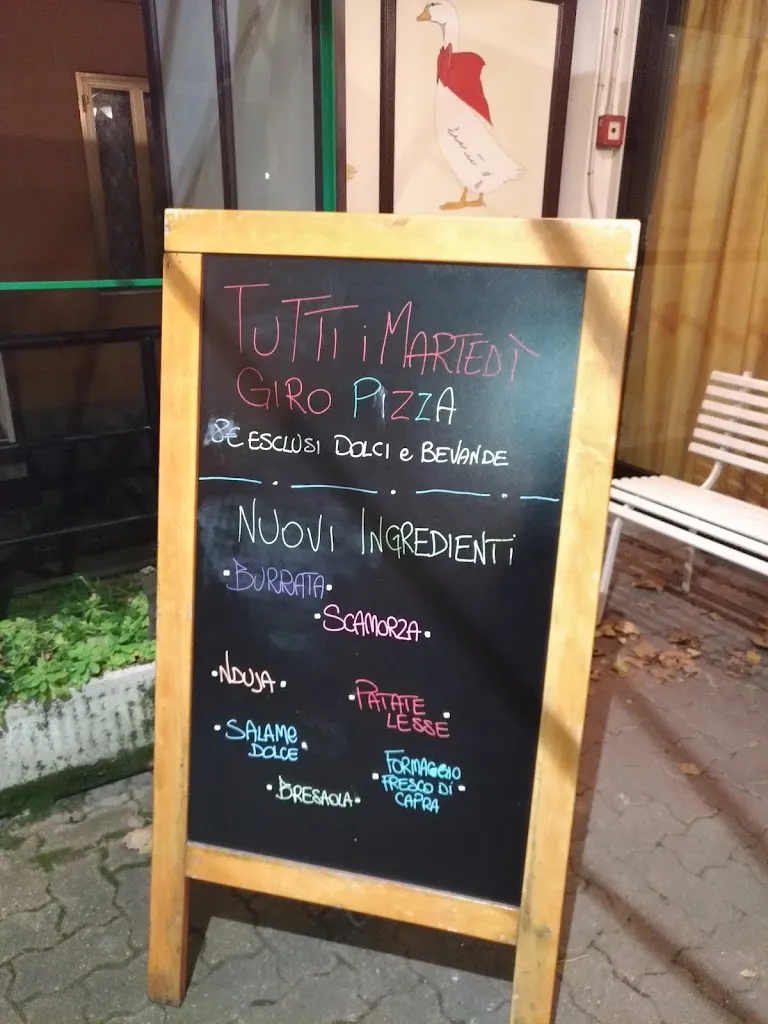 TUTTI i MARTEDÌ
GIRO PIZZA
8€ ESCLUSI DOLCI e BEVANDE
NUOVI INGREDIENTI
• BURRATA •
• SCAMORZA •
• NDUJA •
• PATATE
LESSE •
• SALAME
DOLCE •
• FORMAGGIO
FRESCO DI •
CAPRA
• BRESAOLA •